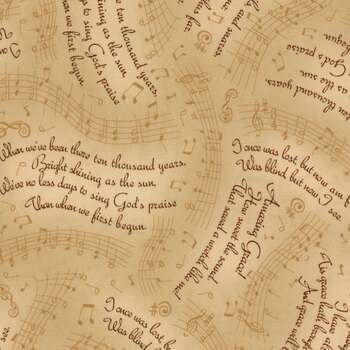 When we've been there ten thousand years,
Bright shining as the sun,
We've no less days to sing God's praise
Than when we first begun.
ten thousand years,
shining as the sun,
days to sing God's praise
when we first
begun.
and snares,
far,
I once was lost but now am f
Was blind but now I see.
Amazing Grace!
How sweet the sound
That saved a wretch like me!
I once was lost b
Was blind bu
see.
God's praise
begun.
as the sun,
thousand years,
'Tis grace hath brough
And grace will
I have alr